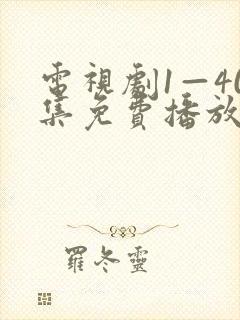 電視劇1—40
集免費播放
羅冬靈